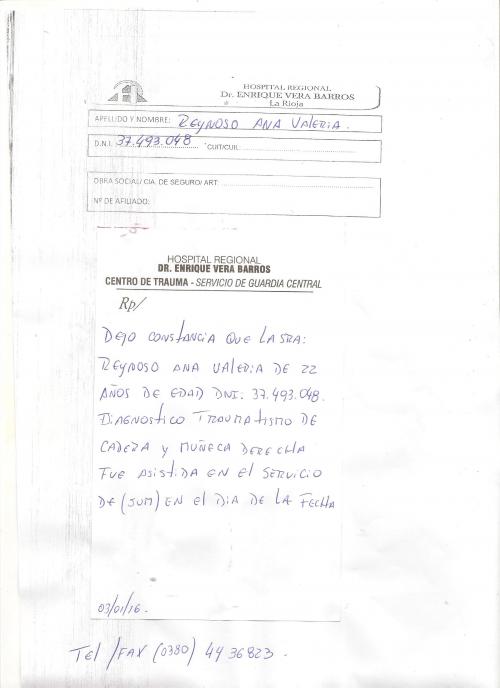 HOSPITAL REGIONAL
Dr. ENRIQUE VERA BARROS
La Rioja
APELLIDO Y NOMBRE: REYNOSO ANA VALERIA.
D.N.I. 37.493.048 CUIT/CUIL:
OBRA SOCIAL/ CIA. DE SEGURO/ ART:
Nº DE AFILIADO:
HOSPITAL REGIONAL
DR. ENRIQUE VERA BARROS
CENTRO DE TRAUMA - SERVICIO DE GUARDIA CENTRAL
Rp/
DEJO CONSTANCIA QUE LA SRA:
REYNOSO ANA VALERIA DE 22
AÑOS DE EDAD DNI: 37.493.048.
DIAGNOSTICO TRAUMATISMO DE
CADERA y MUÑECA DERECHA
FUE ASISTIDA EN EL SERVICIO
DE (SUM) EN EL DIA DE LA FECHA
03/01/16.
TEL /FAX (0380) 4436823.